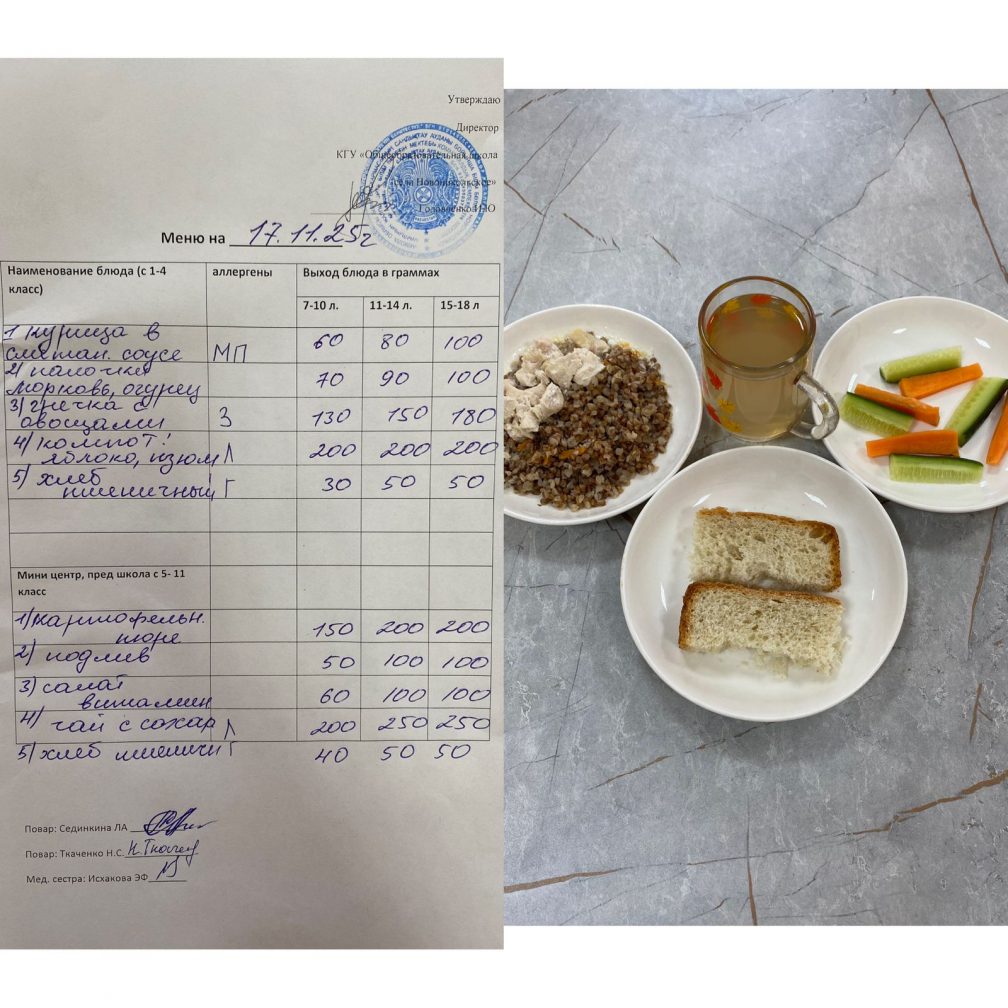 Утверждаю
Директор
КГУ «Общеобразовательная школа
села Новоникольское»
Головченко И.Ю
Меню на 17.11.25г
Наименование блюда (с 1-4 класс) аллергены Выход блюда в граммах
7-10 л. 11-14 л. 15-18 л
1 курица в
сметан. соусе МП 60 80 100
2) палочки
морковь, огурец 70 90 100
3) гречка с
овощами З 130 150 180
4) компот:
яблоко, изюм Л 200 200 200
5) хлеб
пшеничный Г 30 50 50
Мини центр, пред школа с 5- 11
класс
1) картофельн.
пюре 150 200 200
2) подлив 50 100 100
3) салат
витамин 60 100 100
4) чай с сахар Л 200 250 250
5) хлеб пшеничн Г 40 50 50
Повар: Сединкина ЛА
Повар: Ткаченко Н.С. Н.Ткачен
Мед. сестра: Исхакова ЭФ